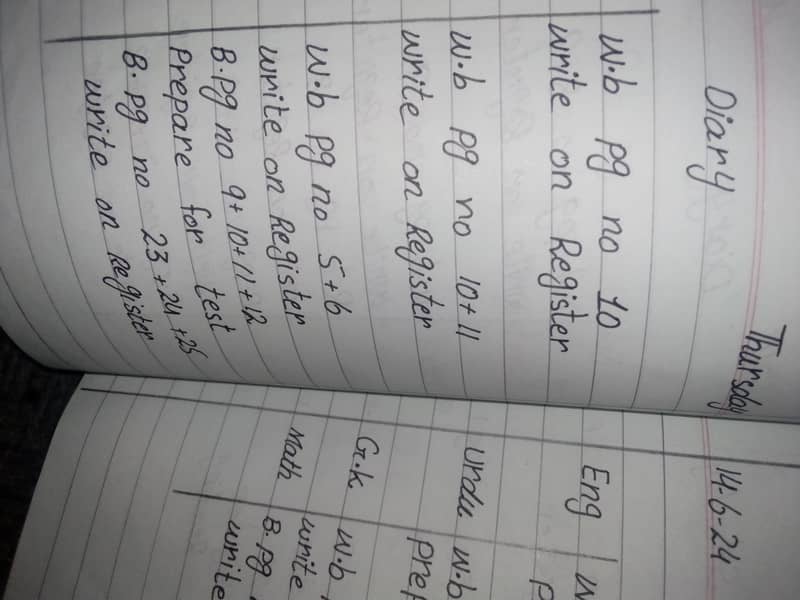 Diary Thursday
W.b pg no 10
write on Register
W.b pg no 10+11
write on Register
W.b pg no 5+6
write on Register
B.pg no 9+10+11+12
Prepare for test
B.pg no 23+24+25
write on Register
14-6-24
Eng
Urdu W.b
prep
G.k W.b
write
Math B.pg
write